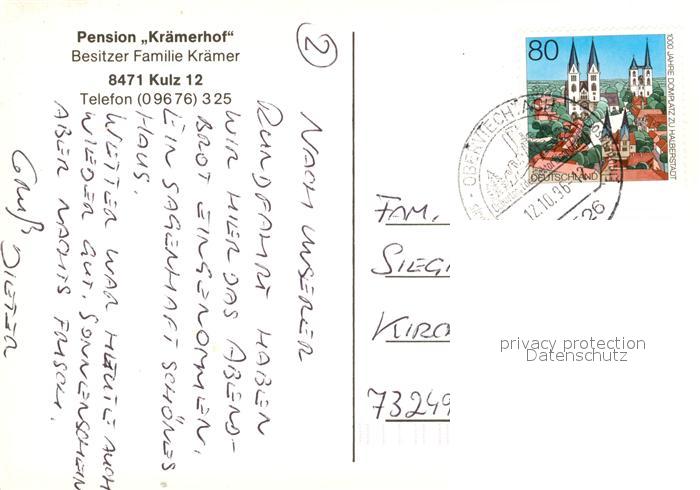 Pension „Krämerhof“
Besitzer Familie Krämer
8471 Kulz 12
Telefon (0 96 76) 3 25
2
NACH UNSERER
RUNDFAHRT HABEN
WIR HIER DAS ABEND-
BROT EINGENOMMEN.
EIN SAGENHAFT SCHÖNES
HAUS.
WETTER WAR HEUTE AUCH
WIEDER GUT, SONNENSCHEIN
ABER NACHTS FRISCH.
Gruß
DIETER
80
1000 JAHRE DOMPLATZ ZU HALBERSTADT
DEUTSCHLAND
OBERVIECHTACH
12.10.96
26
FAM.
SIEG
KIRC
73249
privacy protection
Datenschutz